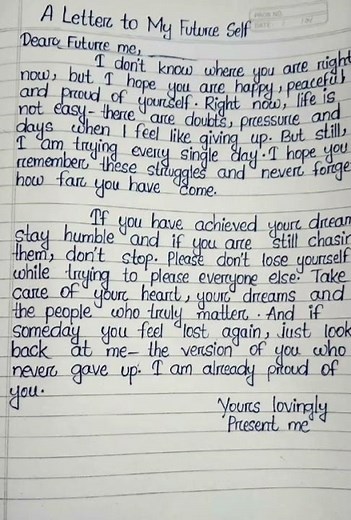 A Letter to My Future Self
Dear Future me,
I don't know where you are right
now, but I hope you are happy, peaceful
and proud of yourself. Right now, life is
not easy- there are doubts, pressure and
days when I feel like giving up. But still,
I am trying every single day. I hope you
remember these struggles and never forge
how far you have come.
If you have achieved your dream
stay humble and if you are still chasin
them, don't stop. Please don't lose yourself
while trying to please everyone else. Take
care of your heart, your dreams and
the people who truly matter. And if
someday you feel lost again, just look
back at me- the version of you who
never gave up. I am already proud of
you.
Yours lovingly
Present me